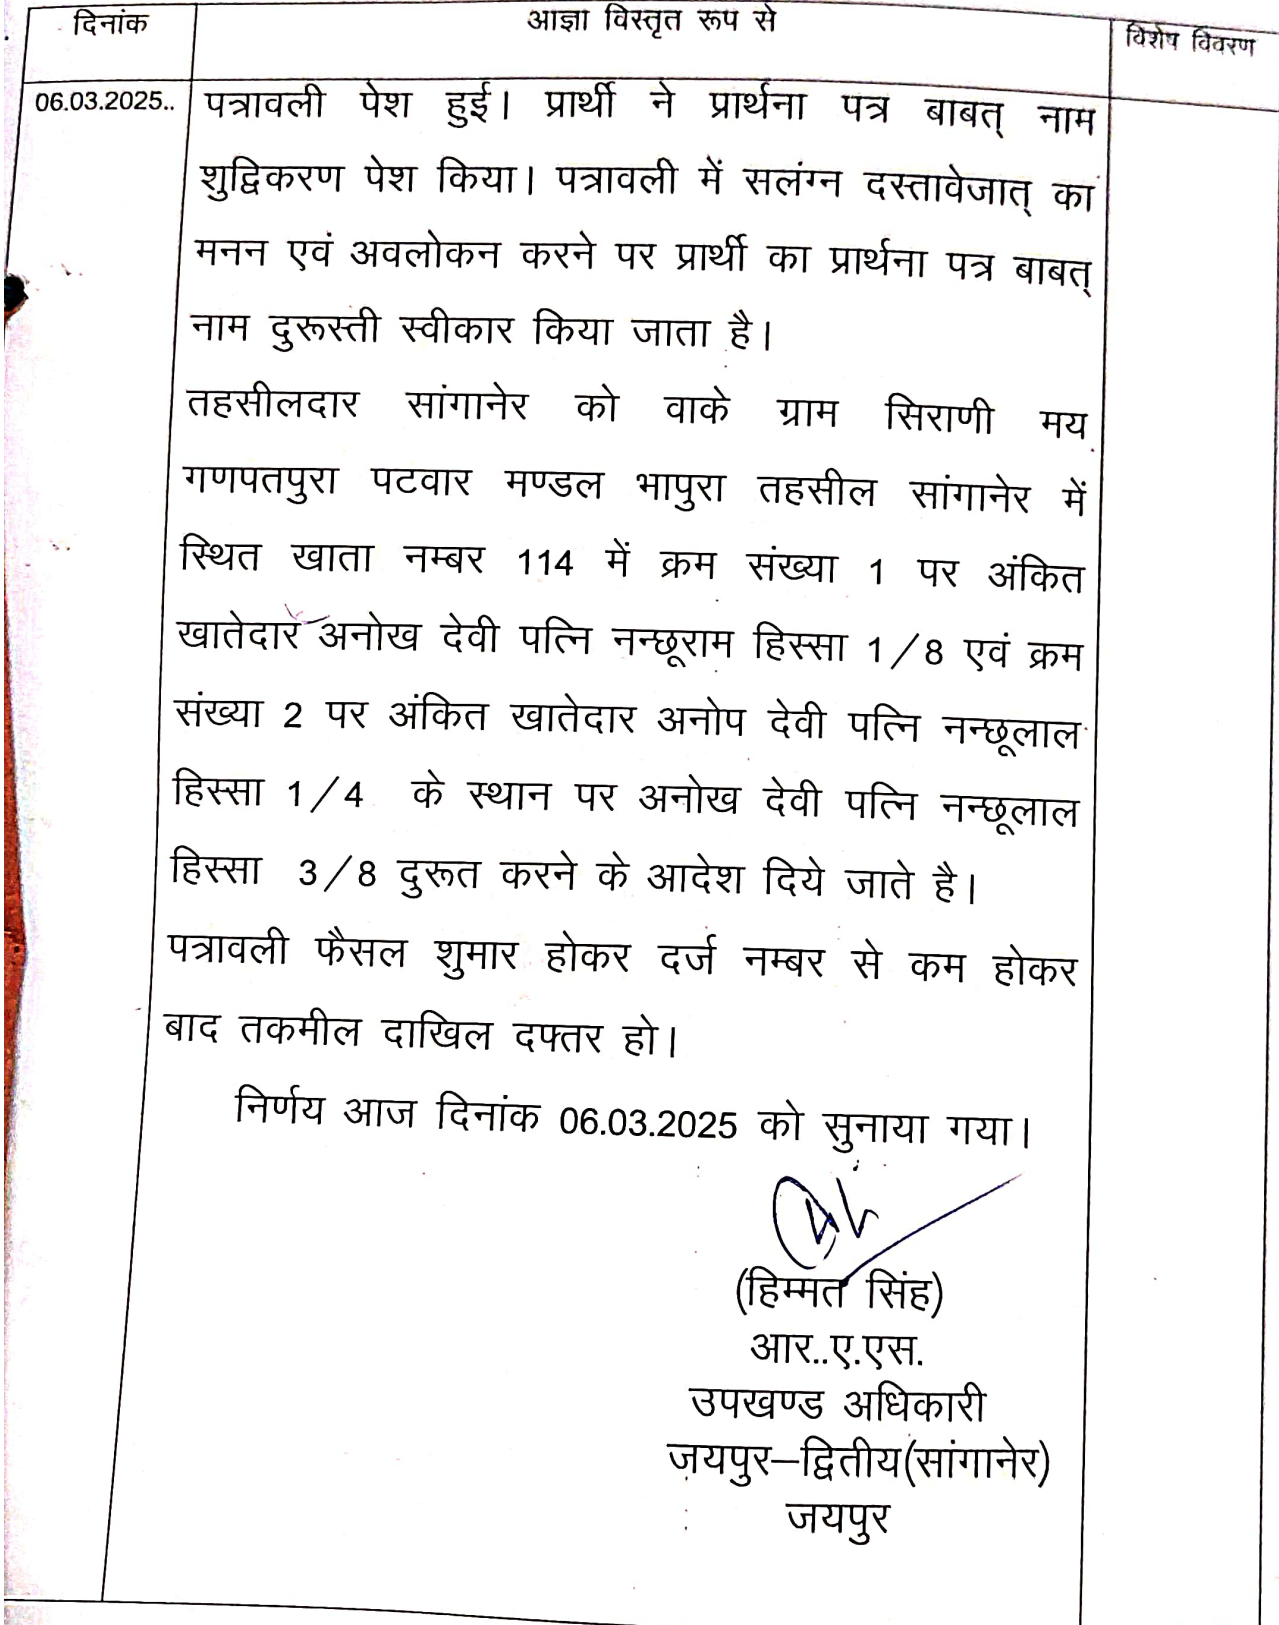 दिनांक
आज्ञा विस्तृत रूप से
विशेष विवरण
06.03.2025..
पत्रावली पेश हुई। प्रार्थी ने प्रार्थना पत्र बाबत् नाम
शुद्विकरण पेश किया। पत्रावली में सलंग्न दस्तावेजात् का
मनन एवं अवलोकन करने पर प्रार्थी का प्रार्थना पत्र बाबत्
नाम दुरूस्ती स्वीकार किया जाता है।
तहसीलदार सांगानेर को वाके ग्राम सिराणी मय
गणपतपुरा पटवार मण्डल भापुरा तहसील सांगानेर में
स्थित खाता नम्बर 114 में क्रम संख्या 1 पर अंकित
खातेदार अनोख देवी पत्नि नन्छूराम हिस्सा 1/8 एवं क्रम
संख्या 2 पर अंकित खातेदार अनोप देवी पत्नि नन्छूलाल
हिस्सा 1/4 के स्थान पर अनोख देवी पत्नि नन्छूलाल
हिस्सा 3/8 दुरूत करने के आदेश दिये जाते है।
पत्रावली फैसल शुमार होकर दर्ज नम्बर से कम होकर
बाद तकमील दाखिल दफ्तर हो।
निर्णय आज दिनांक 06.03.2025 को सुनाया गया।
(हिम्मत सिंह)
आर..ए.एस.
उपखण्ड अधिकारी
जयपुर–द्वितीय(सांगानेर)
जयपुर